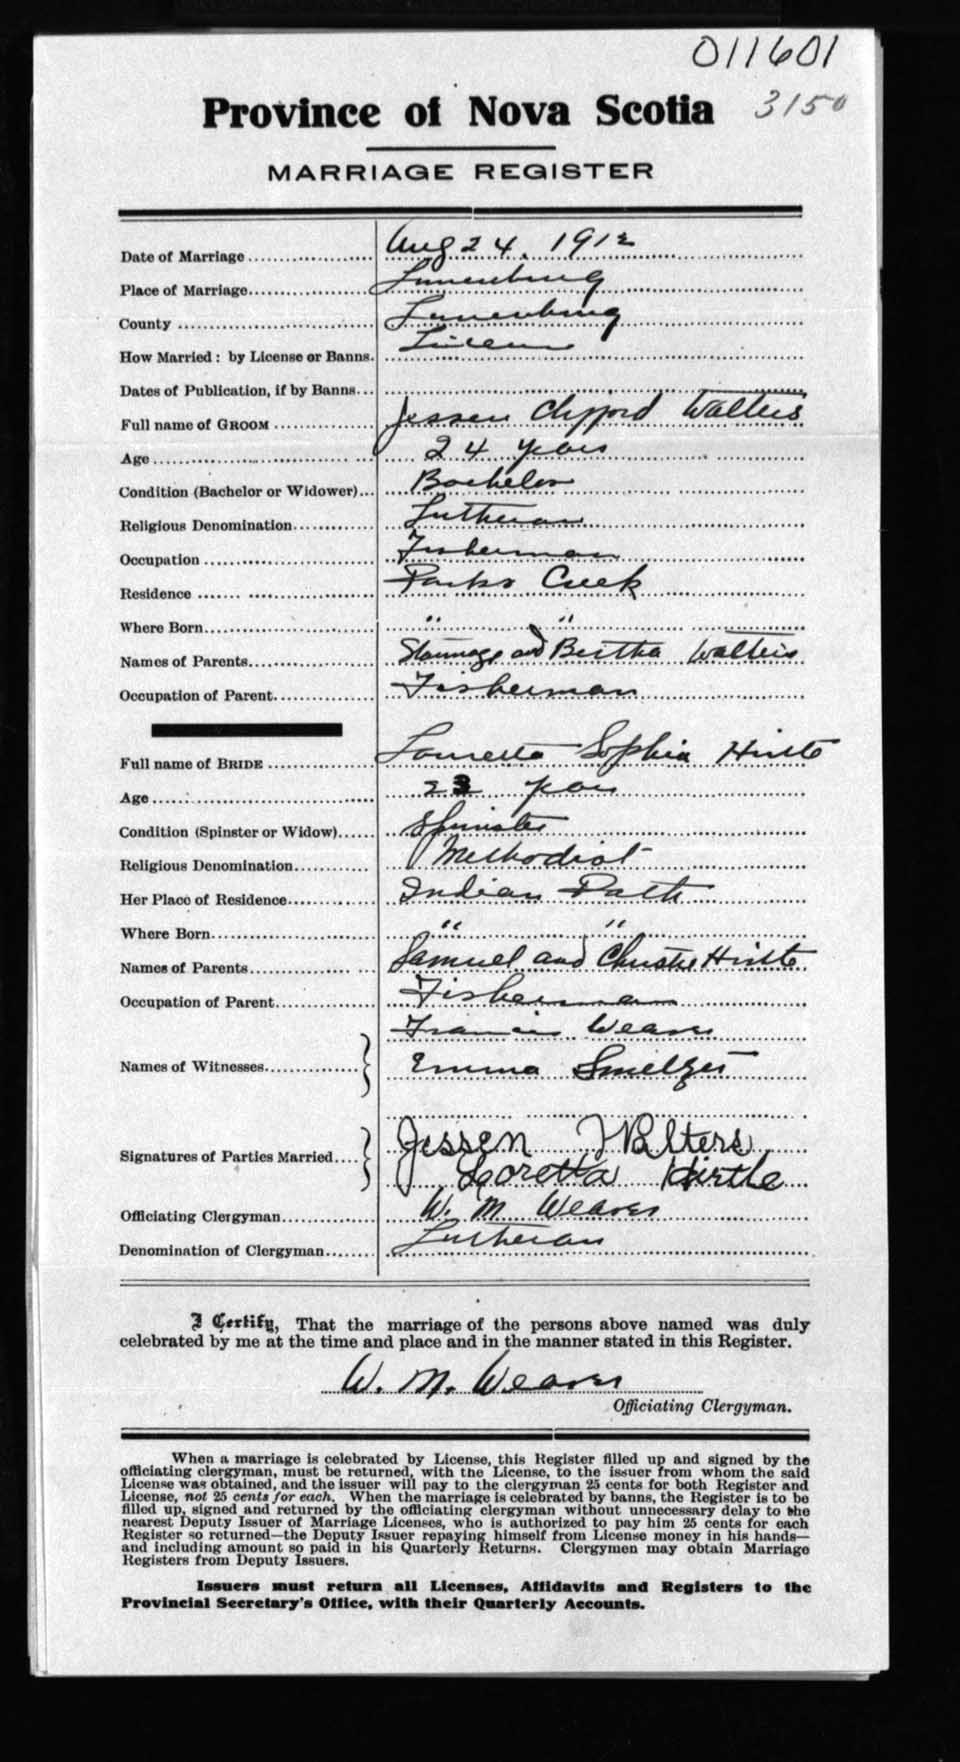 011601
Province of Nova Scotia 3150
MARRIAGE REGISTER
Date of Marriage Aug 24. 1912
Place of Marriage Lunenburg
County Lunenburg
How Married: by License or Banns. License
Dates of Publication, if by Banns
Full name of GROOM Jessen Clifford Walters
Age 24 years
Condition (Bachelor or Widower) Bachelor
Religious Denomination Lutheran
Occupation Fisherman
Residence Parks Creek
Where Born " "
Names of Parents and Bertha Walters
Occupation of Parent Fisherman
Full name of BRIDE Louretta Sophia Hirtle
Age 23 years
Condition (Spinster or Widow) Spinster
Religious Denomination Methodist
Her Place of Residence Indian Path
Where Born " "
Names of Parents Samuel and Christie Hirtle
Occupation of Parent Fisherman
Francis Weaver
Names of Witnesses Emma Smeltzer
Signatures of Parties Married Jessen Walters
Loretta Hirtle
Officiating Clergyman W. M. Weaver
Denomination of Clergyman Lutheran
I Certify, That the marriage of the persons above named was duly
celebrated by me at the time and place and in the manner stated in this Register.
W. M. Weaver
Officiating Clergyman.
When a marriage is celebrated by License, this Register filled up and signed by the
officiating clergyman, must be returned, with the License, to the issuer from whom the said
License was obtained, and the issuer will pay to the clergyman 25 cents for both Register and
License, not 25 cents for each. When the marriage is celebrated by banns, the Register is to be
filled up, signed and returned by the officiating clergyman without unnecessary delay to the
nearest Deputy Issuer of Marriage Licenses, who is authorized to pay him 25 cents for each
Register so returned—the Deputy Issuer repaying himself from License money in his hands—
and including amount so paid in his Quarterly Returns. Clergymen may obtain Marriage
Registers from Deputy Issuers.
Issuers must return all Licenses, Affidavits and Registers to the
Provincial Secretary's Office, with their Quarterly Accounts.